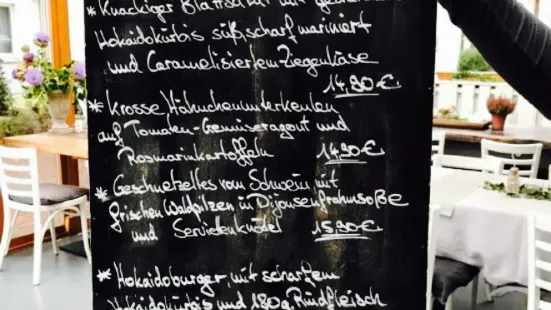 * Knackiger Blattsalat mit
Hokaidokürbis süß, scharf mariniert
und Caramelisiertem Ziegenkäse
14,90€
* Krosse Hähnchenunterkeulen
auf Tomaten-Gemüseragout und
Rosmarinkartoffeln 14,90€
* Geschnetzelles vom Schwein mit
frischen Waldpilzen in Dijonsenfrahmsoße
und Servietenknödel 15,90€
* Hokaidoburger, mit scharfem
Hokaidokürbis und 180g Rindfleisch